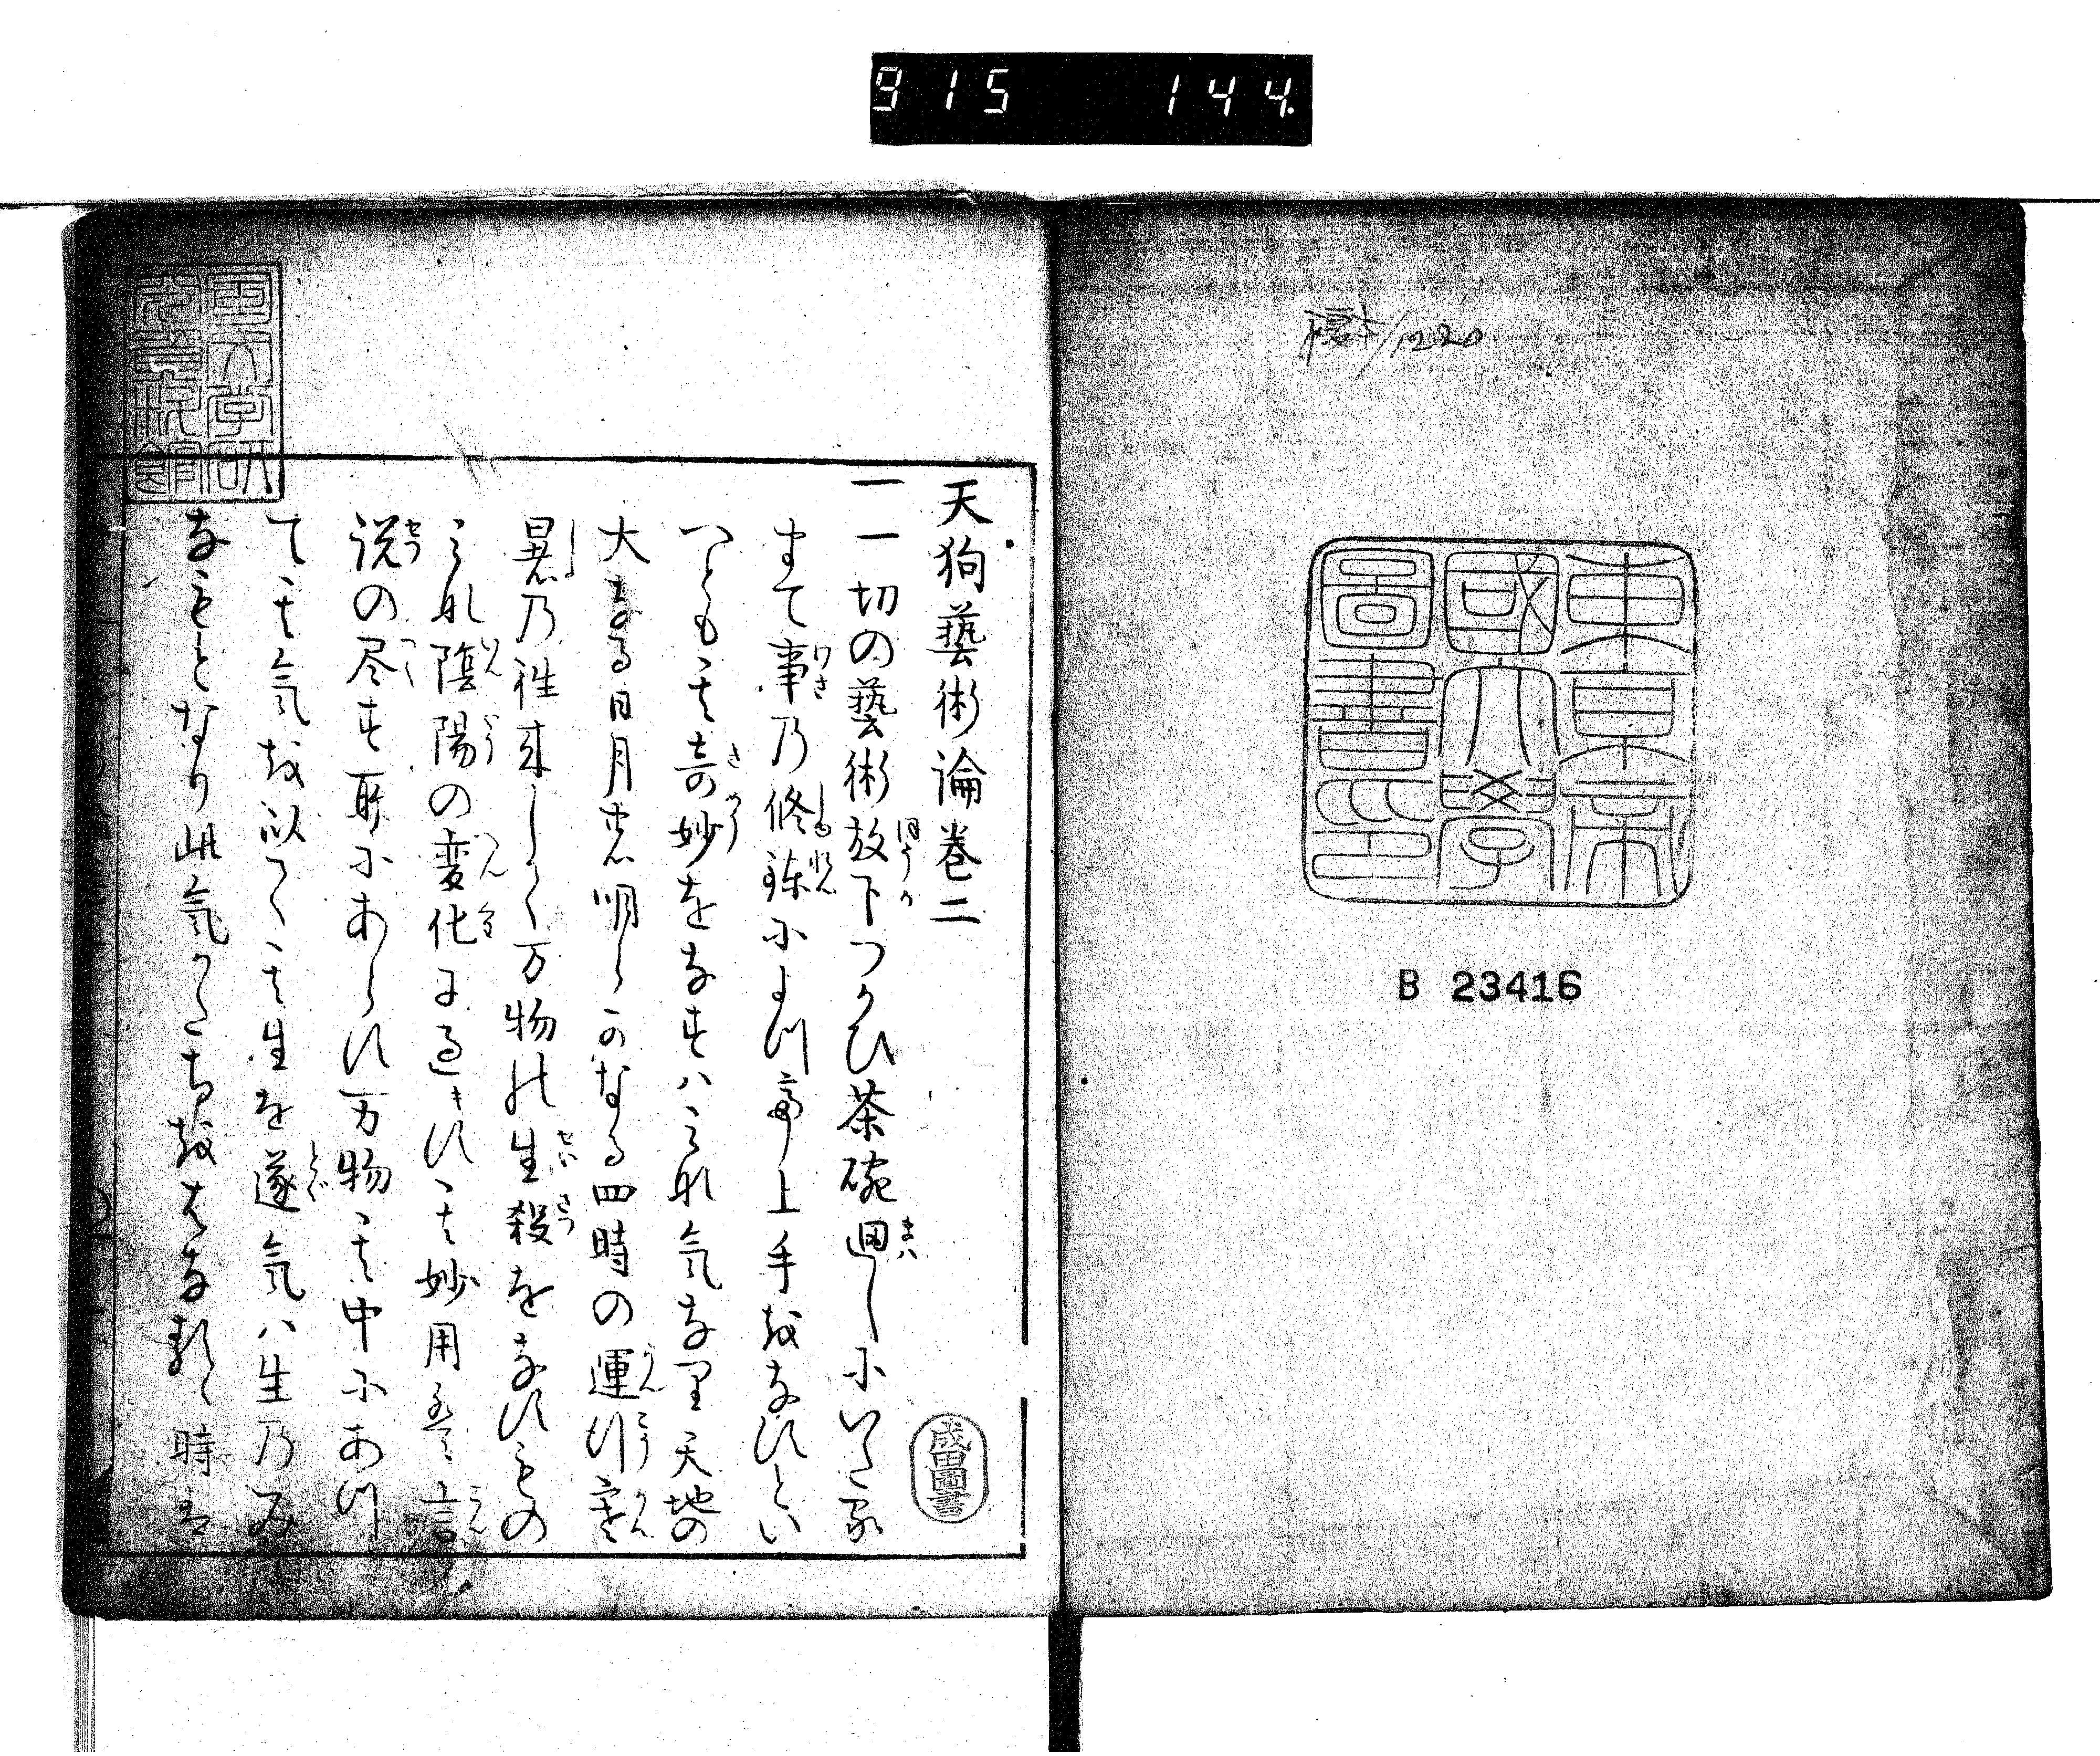 915 144
1220
東京帝
國大學
圖書印
B 23416
天狗藝術論巻二
一一切の藝術放下つかひ茶碗廻しにいたる
まて事乃修錬によりて上手をなすとい
へとも其奇妙をなすハこれ気なり天地の
大なる日月の明らかなる四時の運行寒
暑乃往来しく万物の生殺をなすもの
これ陰陽の変化に過キす其妙用ハ言
説の尽す所にあらす万物其中にあり
て其気を以て其生を遂気ハ生乃み
なもとなり此気かたちをはなるゝ時は
成田圖書